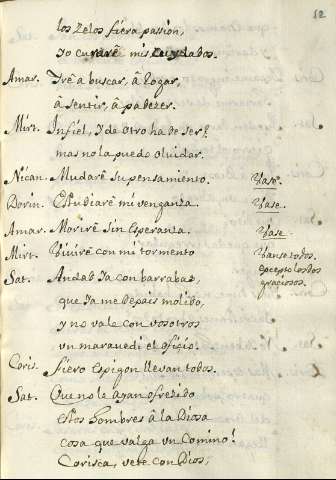 52
los Zelos fiera passion,
yo curarè mis cuydados.
Amar. Yrè a buscar, â Rogar,
â sentir, â padezer.
Mirt. Infiel, y de otro ha de ser?
mas no la puedo olvidar.
Nican. Mudarè su pensamiento. Vase.
Dorin. Estudiarè mi venganza. Vase.
Amar. Morirè sin esperanza. Vase.
Mirt. Viuirè con mi tormento Vanse todos.
excepto los dos
graciosos.
Sat. Andad ya con barrabas,
que ya me dejais molido,
y no vale con vosotros
un maravedi el ofizio.
Coris. fiero espigon llevan todos.
Sat. Que no le ayan ofrezido
estos hombres â la Diosa
cosa que valga un Comino!
Corisca, vete con Dios,